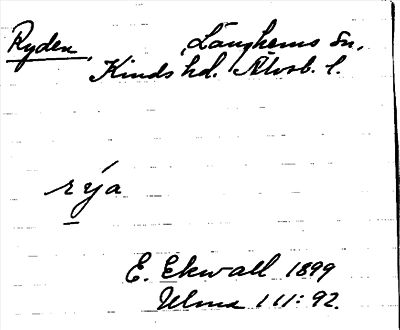 Ryden, Länghems sn,
Kinds hd. Älvsb. l.
rýa
E. Ekwall 1899
Ulma 111: 92.